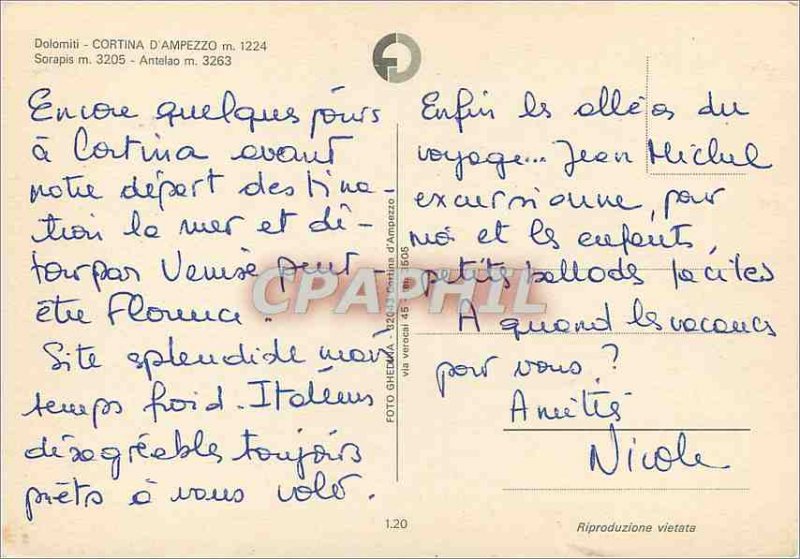 Dolomiti - CORTINA D'AMPEZZO m. 1224
Sorapis m. 3205 - Antelao m. 3263
Encore quelques jours
à Cortina avant
notre départ destina-
tion la mer et dé-
tour par Venise peut-
être Florence.
Site splendide mais
temps froid. Italiens
désagréables toujours
prêts à vous voler.
FOTO GHEDINA - 32043 Cortina d'Ampezzo
via verocai 45
Enfin les aléas du
voyage... Jean Michel
excursionne, pour
moi et les enfants,
petits ballades faciles
A quand les vacances
pour vous ?
Amitiés
Nicole
CPAPHIL
1.20
Riproduzione vietata